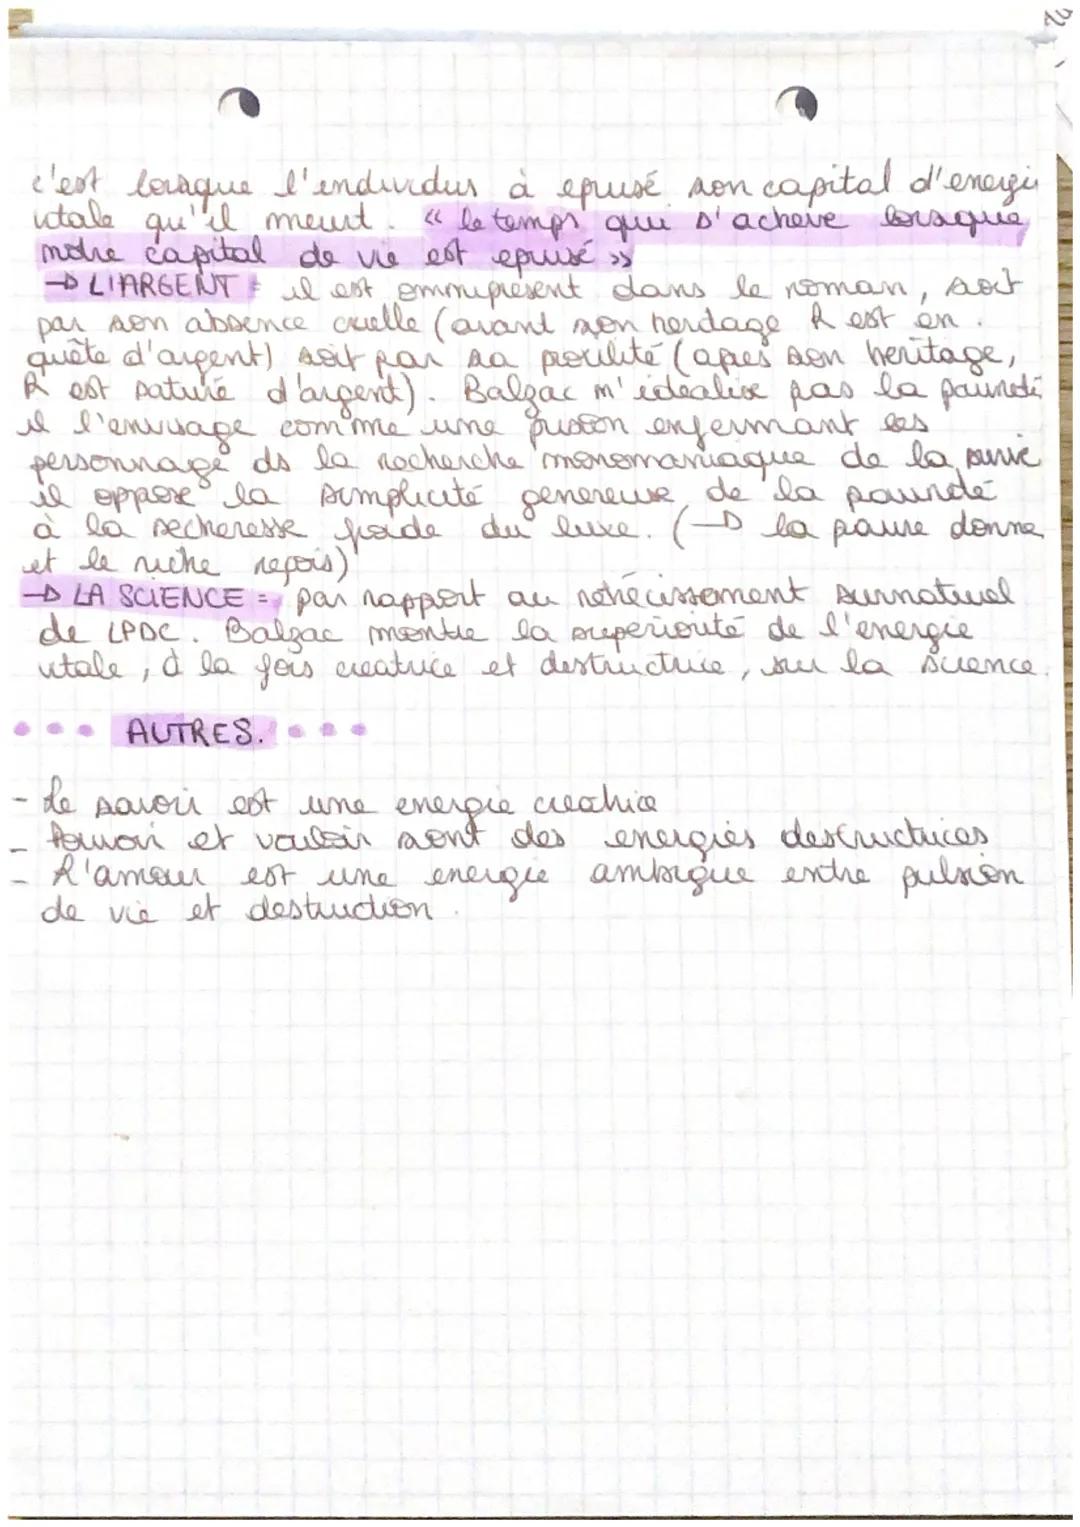 2
c'est lorsque l'individus à epuisé son capital d'energi
vitale qu'il meurt. « le temps qui s'acheve lorsque
notre capital de vie est epuisé »
→ L'ARGENT = il est omnipresent dans le roman, soit
par son absence cruelle (avant son heritage R est en
quête d'argent) soit par sa (apres son heritage,
R est saturé d'argent). Balzac n'idealise pas la pauvreté
il l'envisage comme une prison enfermant les
personnage ds la recherche monomaniaque de la survie
il oppose la simplicité genereuse de la pauvreté
à la secheresse froide du luxe. (→ la pauvre donne
et le riche reçois)
→ LA SCIENCE = par rapport au rétrécissement surnaturel
de LPDC. Balzac montre la superiorité de l'energie
vitale, à la fois creatrice et destructrice, sur la science.
AUTRES.
- Le savoir est une energie creatrice
- Pouvoir et vouloir sont des energies destructrices
- L'amour est une energie ambigue entre pulsion
de vie et destruction.